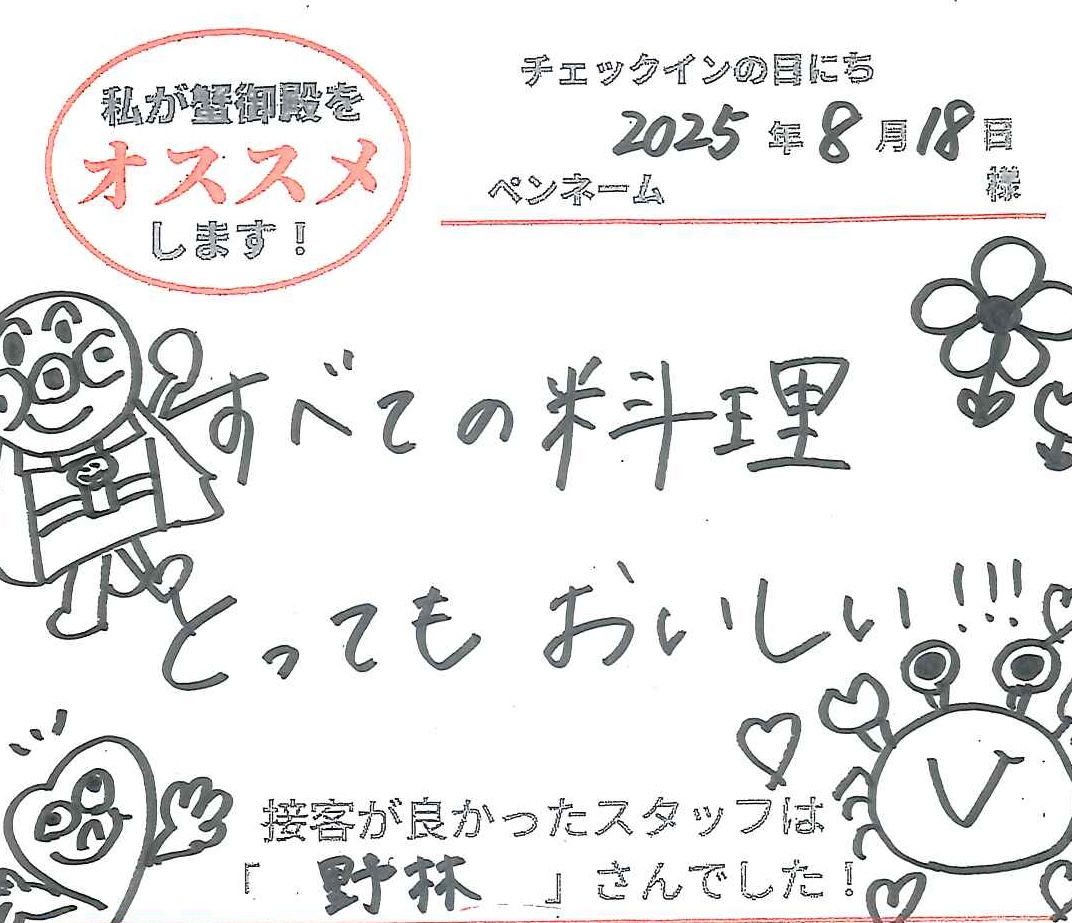 私が蟹御殿を
オススメ
します！
チェックインの日にち
2025年8月18日
ペンネーム 様
すべての料理
とってもおいしい!!!
接客が良かったスタッフは
「野林」さんでした！